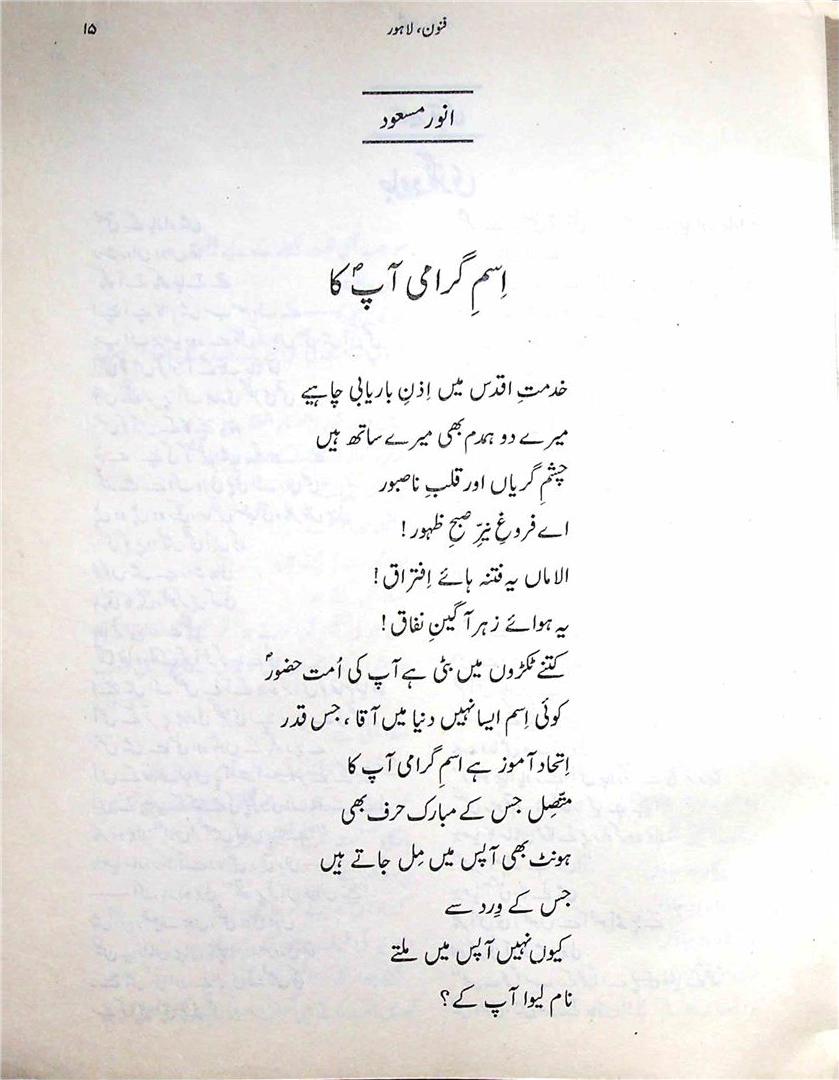 فنون، لاہور
۱۵
انور مسعود
اِسمِ گرامی آپؐ کا
خدمتِ اقدس میں اِذنِ باریابی چاہیے
میرے دو ہمدم بھی میرے ساتھ ہیں
چشمِ گریاں اور قلبِ ناصبور
اے فروغِ نیّرِ صبحِ ظہور!
الاماں یہ فتنہ ہائے اِفتراق!
یہ ہوائے زہر آگینِ نفاق!
کتنے ٹکڑوں میں بٹی ہے آپ کی اُمت حضورؐ
کوئی اِسم ایسا نہیں دنیا میں آقا، جس قدر
اِتحاد آموز ہے اسمِ گرامی آپ کا
متّصِل جس کے مبارک حرف بھی
ہونٹ بھی آپس میں مِل جاتے ہیں
جس کے وِرد سے
کیوں نہیں آپس میں ملتے
نام لیوا آپ کے؟